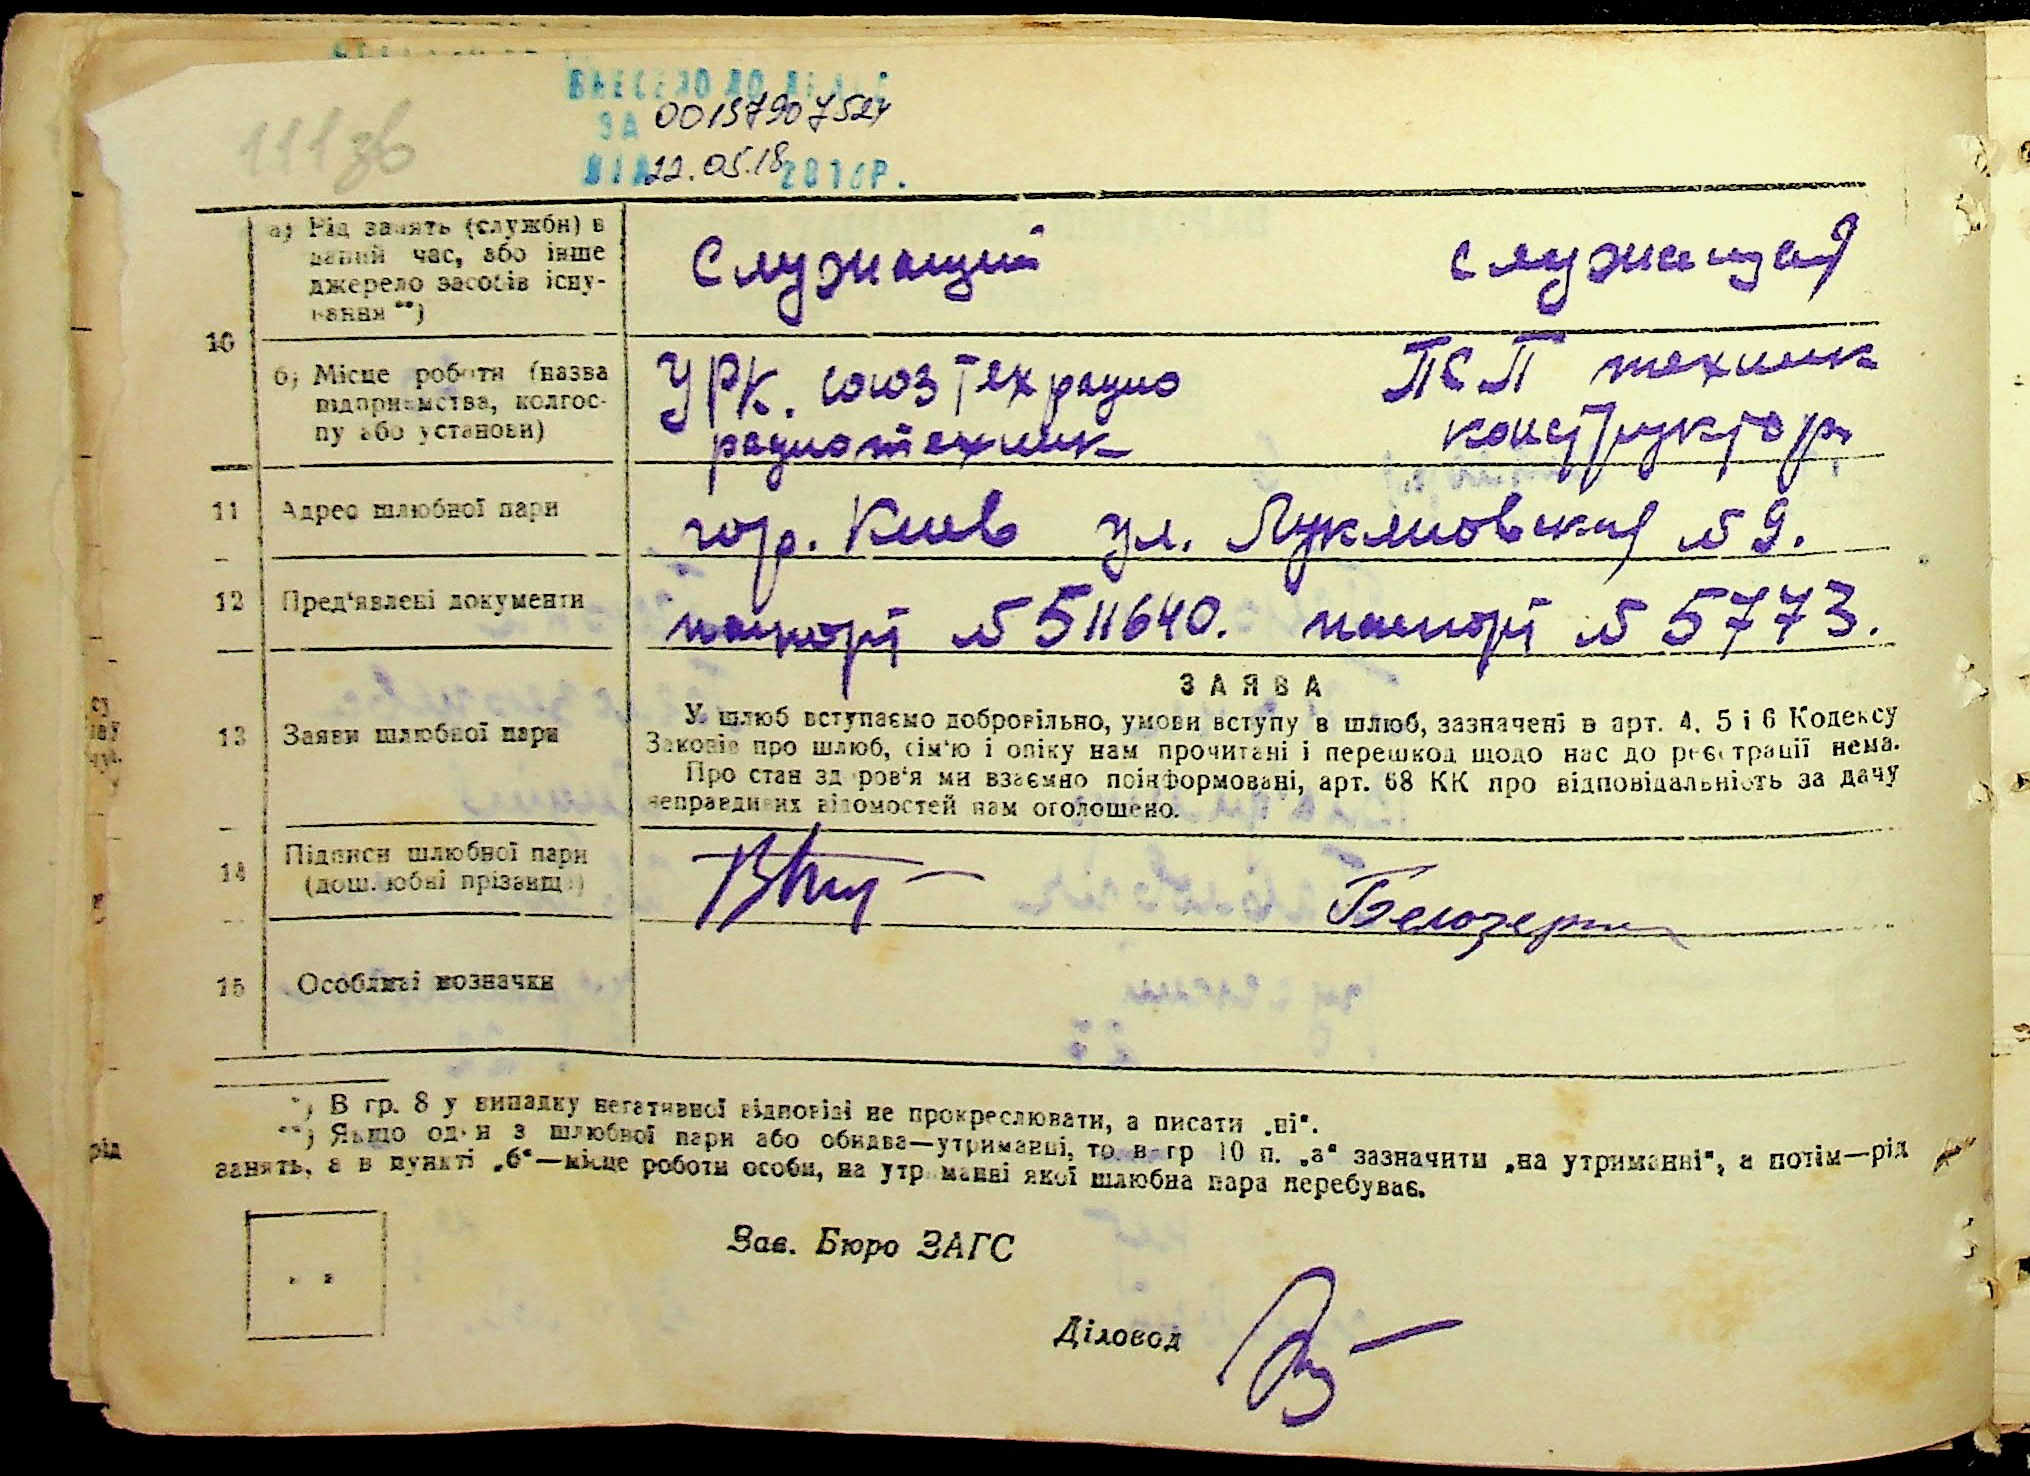 111зв
ВНЕСЕНО ДО
ЗА 00137907524
ВІД 22.05.18 201 Р.
10
а) Рід занять (служби) в
даний час, або інше
джерело засобів існу-
вання **)
Служащий служащая
б) Місце роботи (назва
підприємства, колгос-
пу або установи)
УРК. союзтехрадио ПСП техник
радиотехник конструктор
11 Адрес шлюбної пари гор. Киев ул. Лукяновская № 9.
12 Пред'явлені документи паспорт № 511640. паспорт № 5773.
13 Заяви шлюбної пари
ЗАЯВА
У шлюб вступаємо добровільно, умови вступу в шлюб, зазначені в арт. 4, 5 і 6 Кодексу
Законів про шлюб, сім'ю і опіку нам прочитані і перешкод щодо нас до реєстрації нема.
Про стан здоров'я ми взаємно поінформовані, арт. 68 КК про відповідальність за дачу
неправдивих відомостей нам оголошено.
14 Підписи шлюбної пари
(дошлюбні прізвища)
Белозерк
15 Особливі позначки
*) В гр. 8 у випадку негативної відповіді не прокреслювати, а писати „ні“.
**) Якщо один з шлюбної пари або обидва—утриманці, то в гр 10 п. „а“ зазначити „на утриманні“, а потім—рід
занять, а в пункті „б“—місце роботи особи, на утриманні якої шлюбна пара перебуває.
Зав. Бюро ЗАГС
Діловод